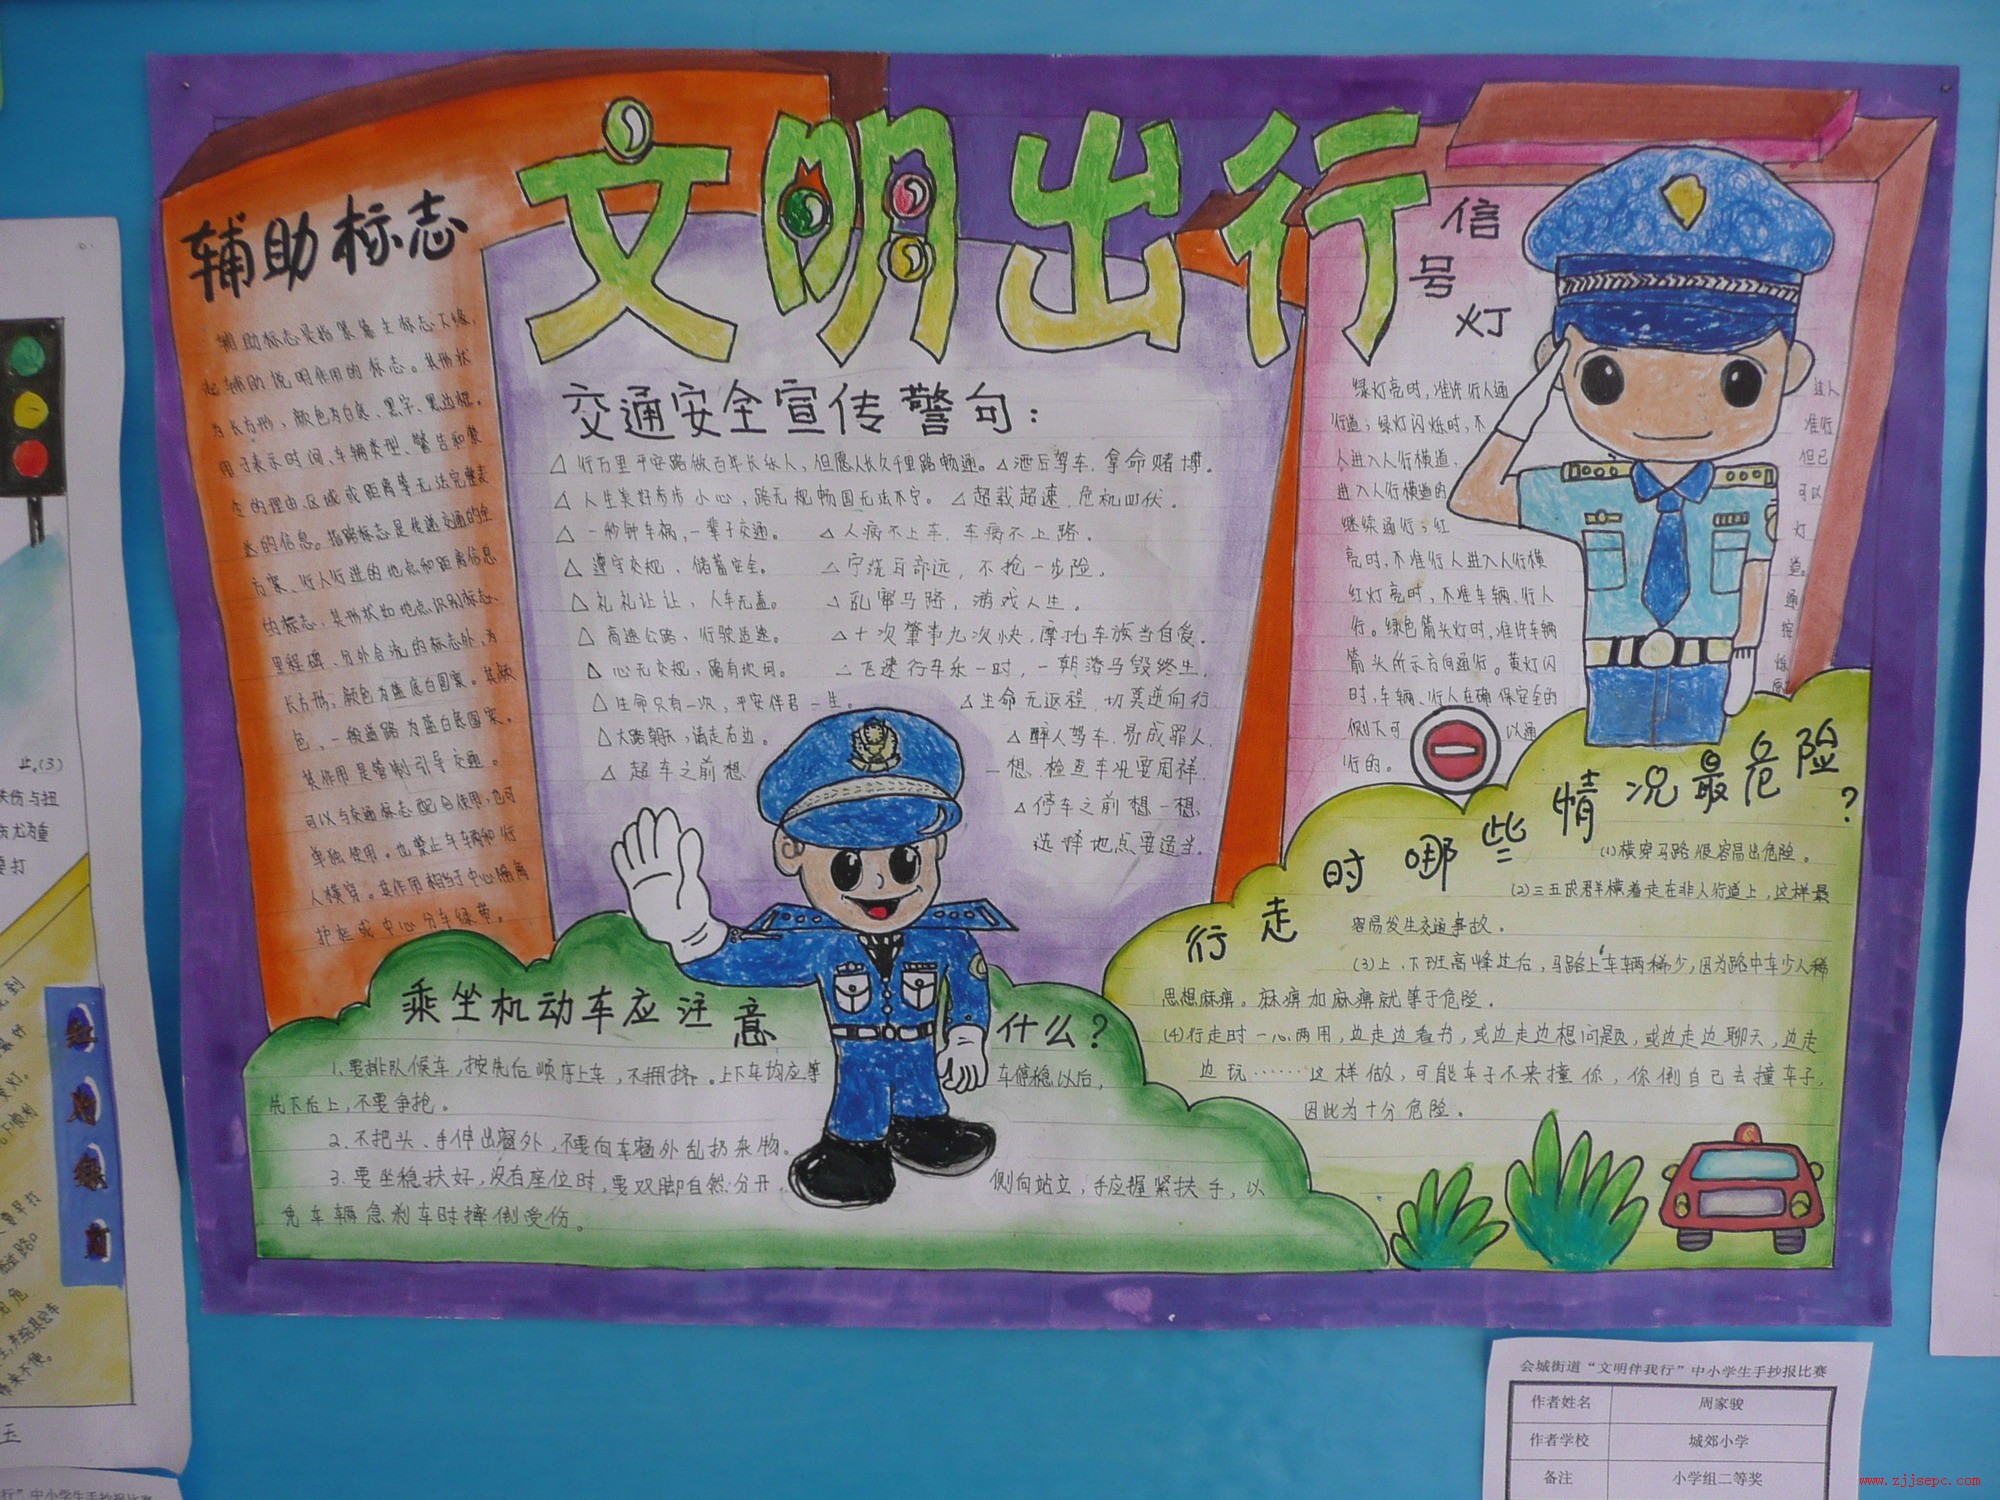 文明出行
辅助标志
辅助标志是指紧靠主标志下缘，
起辅助说明作用的标志。其形状
为长方形，颜色为白底、黑字、黑边框。
用于表示时间、车辆类型、警告和禁
令的理由、区域或距离等无法完整表
达的信息。指路标志是传递交通的
方案、行人行进的地点和距离信息
的标志，其形状如地点识别标志、
里程碑、分外合流的标志外，为
长方形；颜色为蓝底白图案。
色，一般道路为蓝白底图案。
其作用是管制引导交通。
可以与交通标志配合使用，也可
单独使用。也禁止车辆和行
人横穿。其作用相当于中心隔离
护栏或中心分车绿带。
交通安全宣传警句：
△ 行万里平安路做百年长乐人，但愿人长久千里路畅通。△ 酒后驾车，拿命赌博。
△ 人生美好步步小心，路无规畅国无法不宁。 △ 超载超速，危机四伏。
△ 一秒钟车祸，一辈子交通。 △ 人病不上车，车病不上路。
△ 遵守交规，储蓄安全。 △ 宁绕百部远，不抢一步险。
△ 礼礼让让，人车无恙。 △ 乱穿马路，游戏人生。
△ 高速公路，行驶适速。 △ 十次肇事九次快，摩托车族当自爱。
△ 心无交规，路有坎坷。 △ 飞速行车乐一时，一朝落马毁终生。
△ 生命只有一次，平安伴君一生。 △ 生命无返程，切莫逆向行
△ 大路朝天，请走右边。 △ 醉人驾车，易成罪人。
△ 超车之前想 一想，检查车况要周祥。
△ 停车之前想一想，
选择地点要适当。
信号灯
绿灯亮时，准许行人通
行道；绿灯闪烁时，不 准行
人进入人行横道， 但已
进入人行横道的 可以
继续通行；红 灯
亮时，不准行人进入人行横 道。
红灯亮时，不准车辆、行人 通
行。绿色箭头灯时，准许车辆 按
箭头所示方向通行。黄灯闪 烁
时，车辆、行人在确保安全的 原
则下可 以通
行的。
行走时哪些情况最危险？
(1)横穿马路很容易出危险。
(2)三五成群横着走在非人行道上，这样最
容易发生交通事故。
(3)上、下班高峰过后，马路上车辆稀少，因为路中车少人稀
思想麻痹。麻痹加麻痹就等于危险。
(4)行走时一心两用，边走边看书，或边走边想问题，或边走边聊天，边走
边玩……这样做，可能车子不来撞你，你倒自己去撞车子，
因此为十分危险。
乘坐机动车应注意什么？
1.要排队候车，按先后顺序上车，不拥挤。上下车均应等 车停稳以后，
先下后上，不要争抢。
2.不把头、手伸出窗外，不要向车窗外乱扔杂物。
3.要坐稳扶好，没有座位时，要双脚自然分开， 侧向站立，手应握紧扶手，以
免车辆急刹车时摔倒受伤。
止。(3)
伤与扭
尤为重
要打
红
绿
灯
玉
会城街道“文明伴我行”中小学生手抄报比赛
作者姓名 周家骏
作者学校 城郊小学
备注 小学组二等奖
行”中小学生手抄报比赛
www.zjjsepc.com